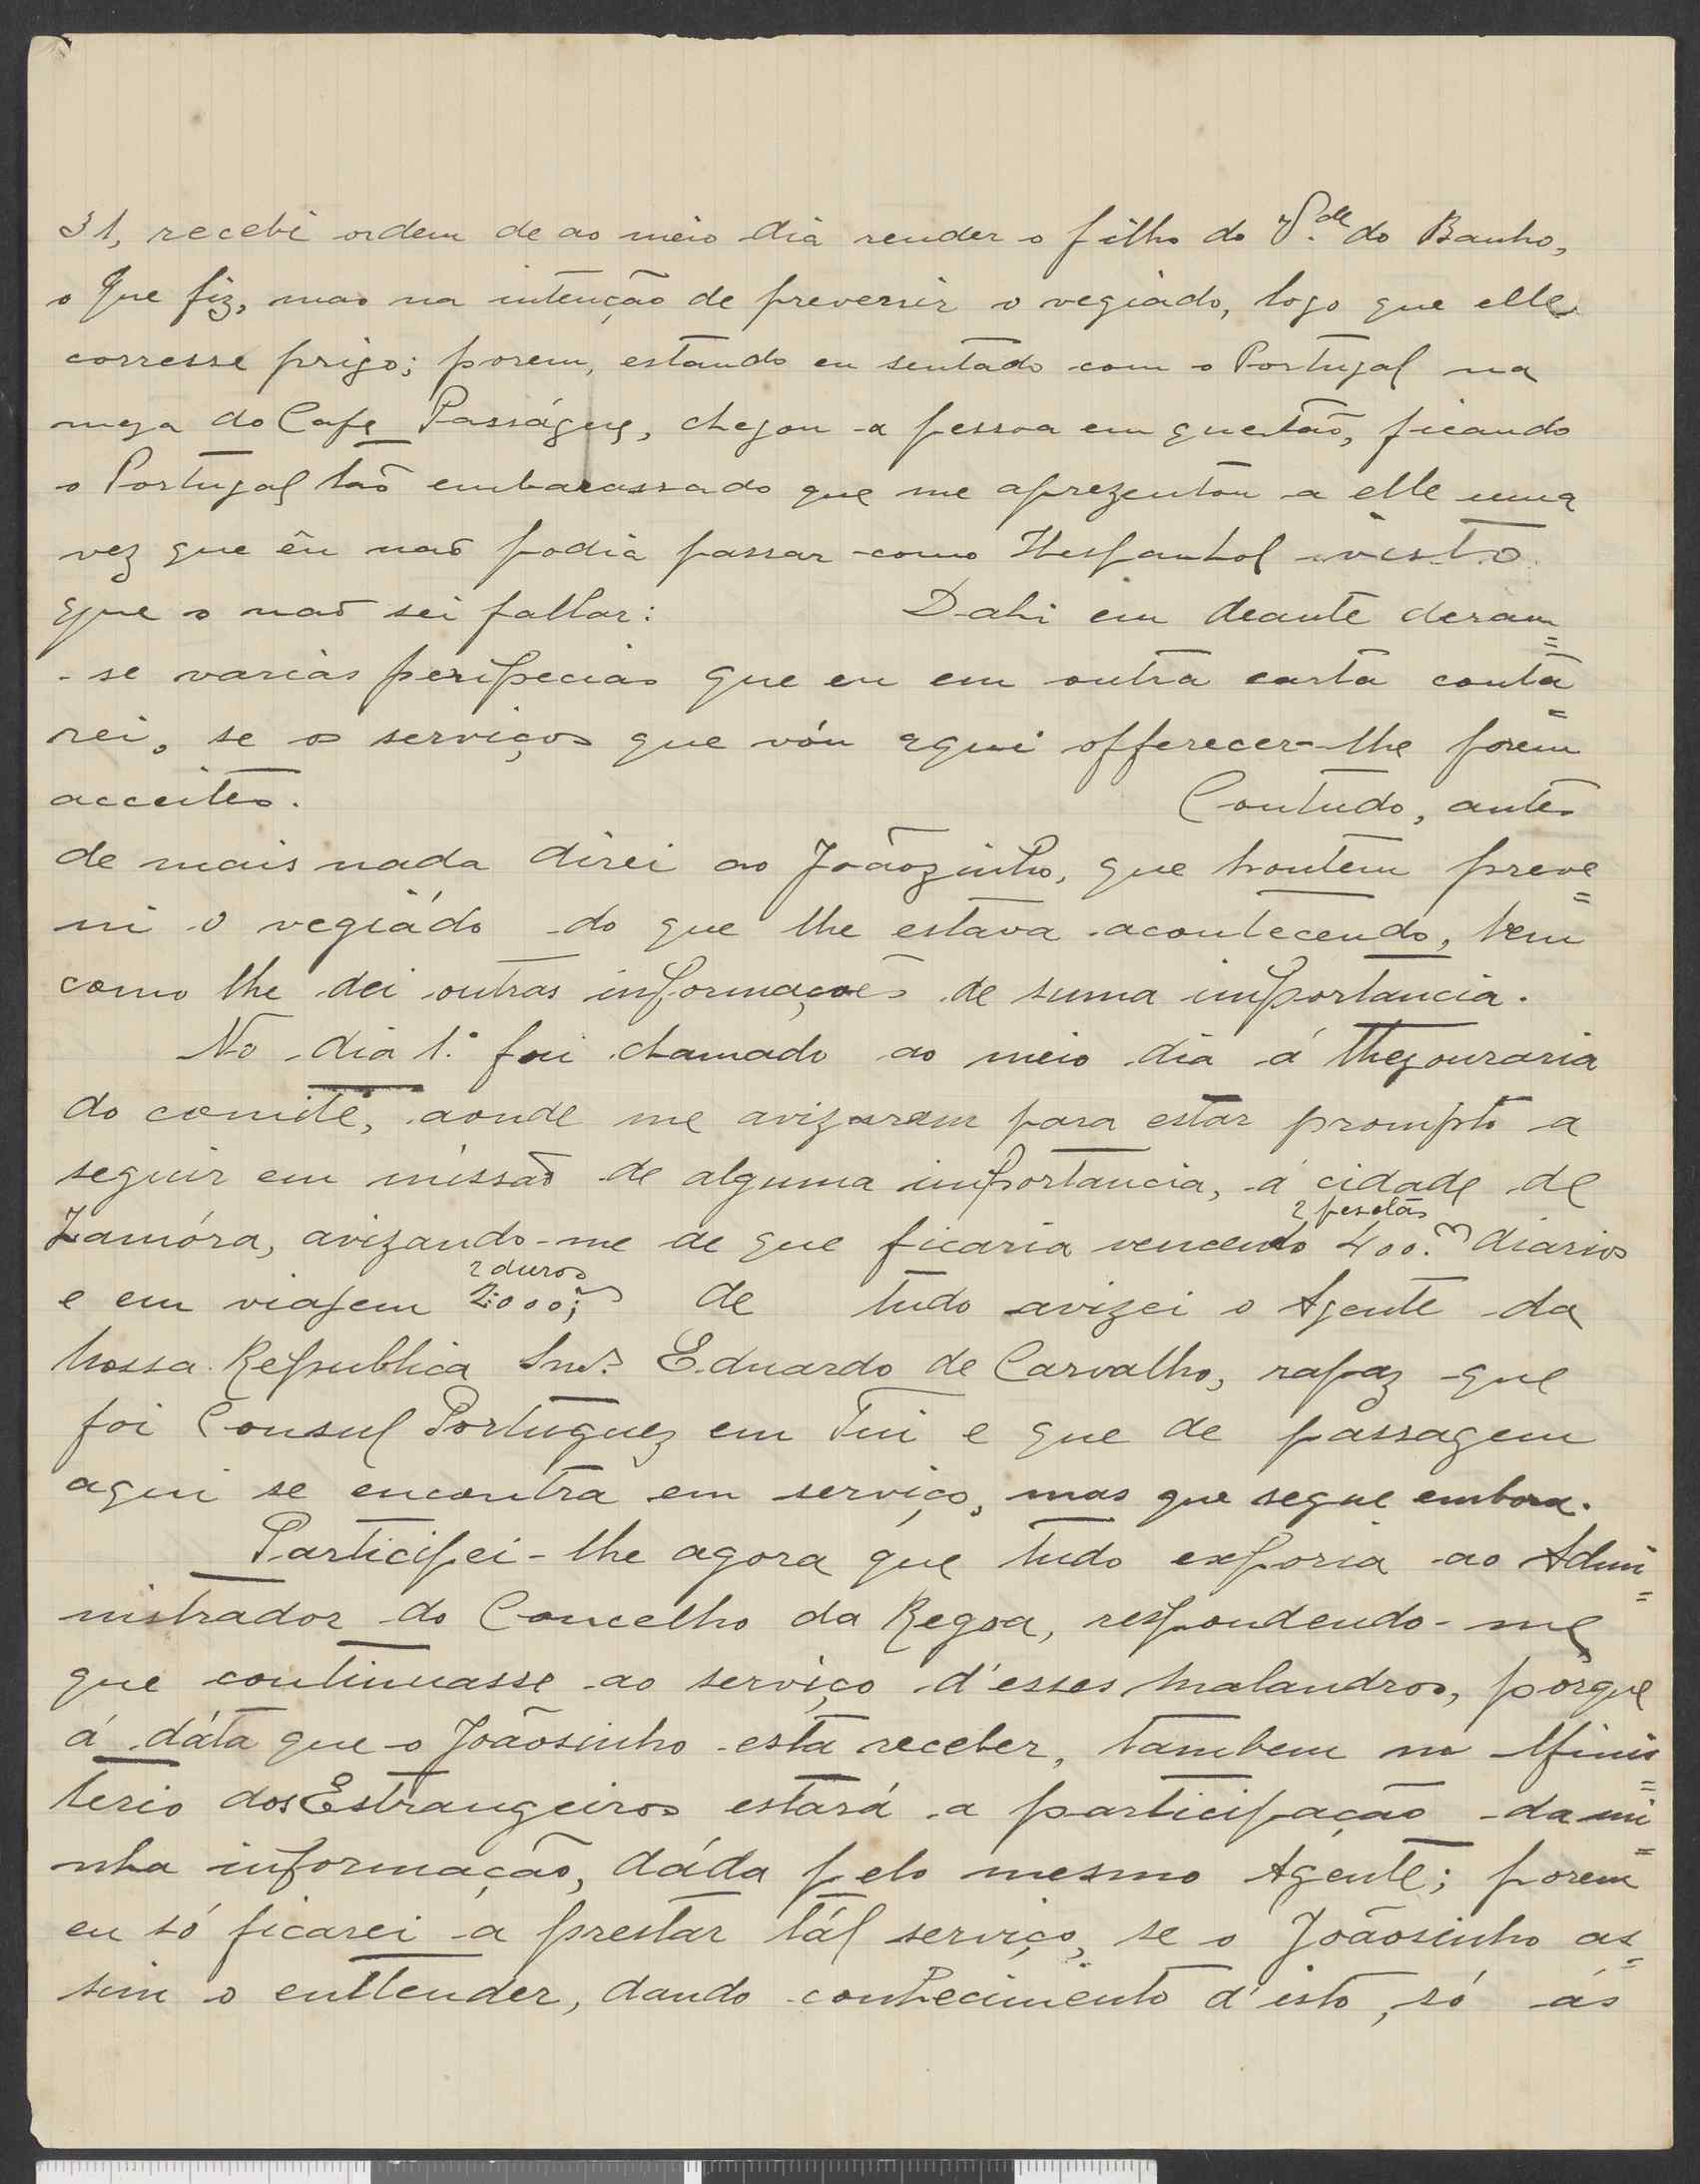 31, recebi ordem de ao meio dia render o filho do V.de do Banho,
o que fiz, mas na intenção de prevenir o vegiádo, logo que elle
corresse prigo; porem, estando eu sentado com o Portugal na
meza do Cafe Passáge, chegou a pessoa em questaõ, ficando
o Portugal taõ embarassado que me aprezentou a elle uma
vez que êu naõ podia passar como Hespanhol visto
que o naõ sei fallar: Dahi em deante deram=
-se varias peripecias que eu em outra carta conta=
rei, se os serviços que vóu aqui offerecer-lhe forem
acceites. Contudo, antes
de mais nada direi ao Joãozinho, que hontem preve=
ni o vegiádo do que lhe estava acontecendo, bem
como lhe dei outras informaçoẽs de suma importancia.
No dia 1.º fui chamado ao meio dia á thezouraria
do comité, aonde me avizaram para estar prompto a
seguir em missaõ de alguma importancia, á cidade de
2 pesetas
Zamóra, avizando-me de que ficaria vencendo 400. diarios
2 duros
e em viajem 2:000; de tudo avizei o Agente da
nossa Republica Snr. Eduardo de Carvalho, rapaz que
foi Consul Portuguez em Tui e que de passagem
aqui se encontra em serviço, mas que segue embora.
Participei-lhe agora que tudo exporia ao Admi=
nistrador do Concelho da Regoa, respondendo-me
que continuasse ao serviço d'esses malandros, porque
á dáta que o Joãosinho está receber, tambem no Minis=
terio dos Estrangeiros estará a participação da mi=
nha informação, dáda pelo mesmo Agente; porem
eu só ficarei a prestar tál serviço, se o Joãosinho as=
sim o enttender, dando conhecimento d'isto, só ás